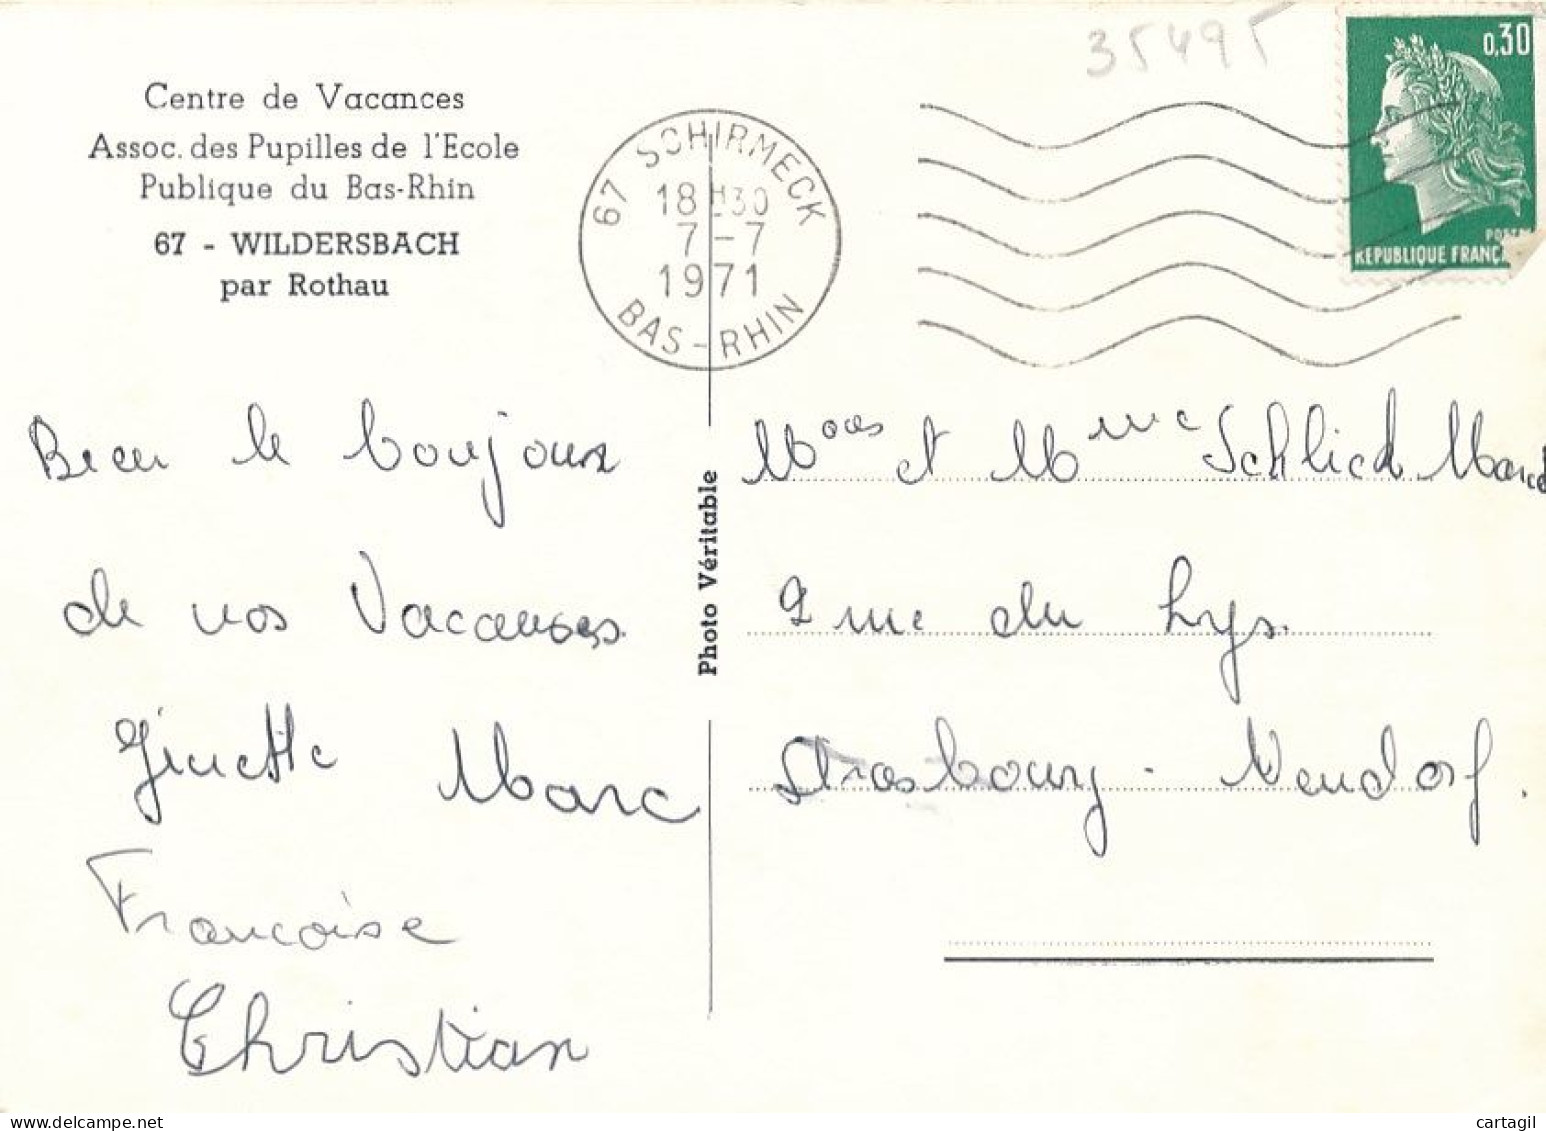 35495
0,30
POSTES
REPUBLIQUE FRANÇA
Centre de Vacances
Assoc. des Pupilles de l'Ecole
Publique du Bas-Rhin
67 - WILDERSBACH
par Rothau
67 SCHIRMECK
18H30
7-7
1971
BAS-RHIN
Bien le boujour
de nos Vacances
Ginette Marc
Francoise
Christian
Photo Véritable
et Mme Schlick
rue du Lys.
Strasbourg - Neudorf.
cartagil